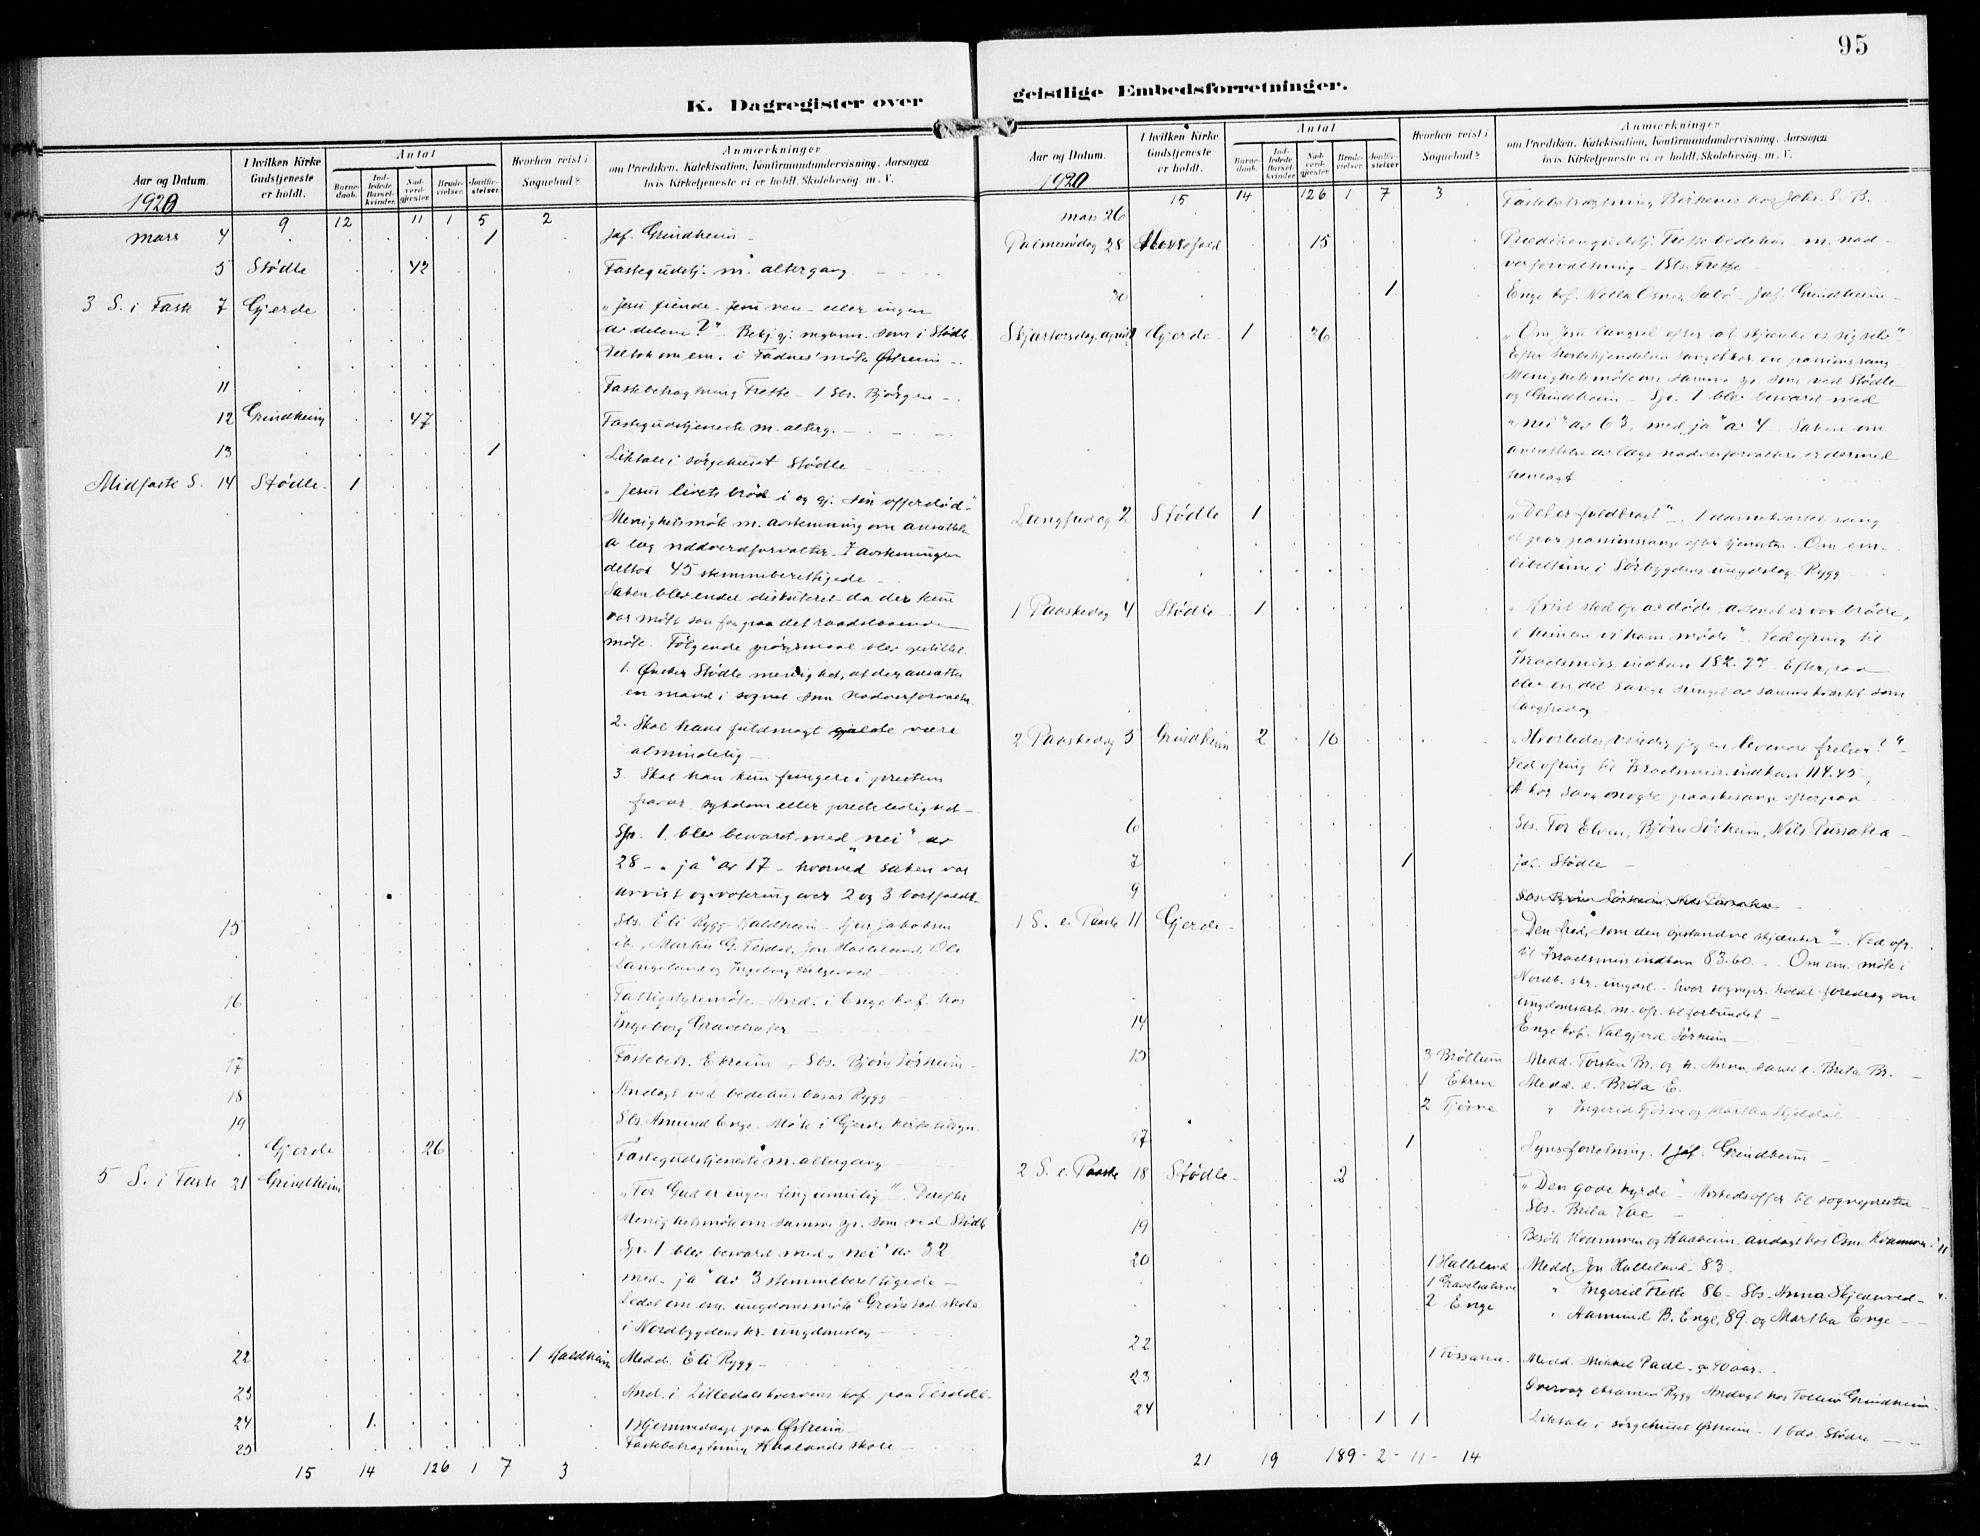 95
K. Dagregister over
geistlige Embedsforretninger.
Aar og Datum.
I hvilken Kirke Gudstjeneste er holdt.
Antal
Barnedaab.
Indledede Barselkvinder.
Nadverdgjæster.
Brudevielser.
Jordfæstelser.
Hvorhen reist i Sognebud?
Anmærkninger
om Prædiken, Katekisation, Konfirmandundervisning, Aarsagen
hvis Kirketjeneste ei er holdt, Skolebesøg m. V.
1920
9 12 11 1 5 2
mars 4 1 Jaf. Grindheim
5 Stødle 42 Fastegudstj. m. altergang
3 S. i Faste 7 Gjerde "Jesu fiende - Jesu ven - eller ingen
av delene?" Bekj. gj. som i Stødle
Deltok om em. i Fadnes' møte Østreim
11 Fastebetragtning Frette - 1 Sbs. Bjørgen
12 Grindheim 47 Fastegudstjeneste m. alterg.
13 1 Liktale i sørgehuset Stødle
Midfaste S. 14 Stødle 1 "Jesus livets brød i og gj. sin offerdød"
Menighetsmøte m. avstemning om ansættelse
av læg nadverdforvalter. I avstemningen
deltok 45 stemmeberettigede
Saken blev endel diskuteret da der kun
var møtt saa faa paa det raadslaaende
møte. Følgende spørgsmaal blev opstillet.
1. Ønsker Stødle menighet, at der ansættes
en mand i sognet som nadverforvalter
2. Skal hans fuldmagt gjælde være
almindelig
3. Skal han kun fungere i prestens
fravær sykdom eller presteledighet
Sp. 1. blev besvaret med "nei" av
28 - "ja" av 17 - hvorved saken var
avvist og votering over 2 og 3 bortfaldt
15 Sbs. Eli Rygg Haldheim - Jakobsen
ib., G. Tesdal, Jon Halleland, Ole
Langeland og Ingeborg
16 Fattigstyremøte - And. i Enge hof. hos
Ingeborg Gravelsæter
17 Fastebetr. Ekreim, Sbs. Bjørn Sørheim
18 Andagt ved bedehusbasar Rygg
19 Sbs. Amund Enge. Møte i Gjerde kirketilsyn
Gjerde 26 Fastegudstjeneste m. altergang
5 S. i Faste 21 Grindheim "For Gud er ingen ting umulig". Derefter
Menighetsmøte om samme sp. som ved Stødle
Sp. 1 blev besvaret med "nei" av 32
med "ja" av 3 stemmeberettigede
Ledet om em. ungdomsmøte skole
i Nordbygdens kr. ungdomslag
22 1 Haldheim Medd. Eli Rygg
23 And. i hof. paa
24 1 1 Hjemmedaap paa Østreim
25 Fastebetragtning Haalands skole
15 14 126 1 7 3
Aar og Datum.
I hvilken Kirke Gudstjeneste er holdt.
Antal
Barnedaab.
Indledede Barselkvinder.
Nadverdgjæster.
Brudevielser.
Jordfæstelser.
Hvorhen reist i Sognebud?
Anmærkninger
om Prædiken, Katekisation, Konfirmandundervisning, Aarsagen
hvis Kirketjeneste ei er holdt, Skolebesøg m. V.
1920
15 14 126 1 7 3
mars 26 Fastebetragtning Birkenes hos Johs. S. B.
Palmesøndag 28 15 Prædikengudstj. Frette bedehus m. nad-
verforvaltning - 1 Sbs. Frette
30 1 Enge hof. Sabø - Jaf. Grindheim
Skjærtorsdag april 1 Gjerde 1 36 "Om Jesu længsel efter at skjænke os sig selv"
Efter sang et kor en passionssang
Menighetsmøte om samme sp. som ved Stødle
og Grindheim - Sp. 1 blev besvaret med
"nei" av 63, med "ja" av 4. Saken om
ansættelse av læge nadverforvaltere er dermed
henlagt
Langfredag 2 Stødle 1 "Det er fuldbragt". 1 damekvartet sang
et par passionssange efter tjenesten. Om em.
bibeltime i Sørbygdens ungdslag. Rygg
1 Paaskedag 4 Stødle 1 "Krist stod op av døde, vor brøde,
i himlen vi ham møde". Ved ofring til
Israelsmiss. indkom 182.77. Efterpaa
blev en del sange sunget av samme kvartet som
Langfredag
2 Paaskedag 5 Grindheim 2 10 "Hvorledes vinder jeg en levende frelser?"
Ved ofring til Israelsmis. indkom 114.45,
Et kor sang nogle paaskesange efterpaa
6 Sbs. Tor Elven, Bjørn Sørheim, Nils
7 1 Jaf. Stødle
9 Sbs. Bjørn Sørheim, Nils
1 S. e. Paaske 11 Gjerde "Den fred, som den opstandne skjænker". Ved ofr.
til Israelsmis indkom 83.60. Om em. møte i
Nordb. kr. ungdsl. - hvor sognepr. holdt foredrag om
ungdomsarb. m. ofr. til forbundet
14 Enge hof. Valgjerd Sørheim
15 3 Medd. Torsten Br. og h. Anna, samt e. Brita Br.
1 Ekren Medd. e. Brita E.
2 Tjøsne " Ingerid Tjøsne og Martha
17 1 Synsforretning. 1 Jaf. Grindheim
2 S. e. Paaske 18 Stødle 2 "Den gode hyrde". Høstidsoffer til sognepresten
Sbs. Brita Vae
19 Besøk og Haaheim andagt hos Osm.
20 1 Halleland Medd. Jon Halleland 83.
1 Gravelsæterne " Ingerid Frette 86 - Sbs. Anna
2 Enge " Aamund B. Enge, 89. og Martha Enge
22 1 Medd. Mikkel - 90 aar.
23 Overvar eksamen Rygg. Andagt hos Grindheim
24 1 1 Liktale i sørgehuset Østreim - 1 Stødle
21 19 189 - 2 - 11 - 14